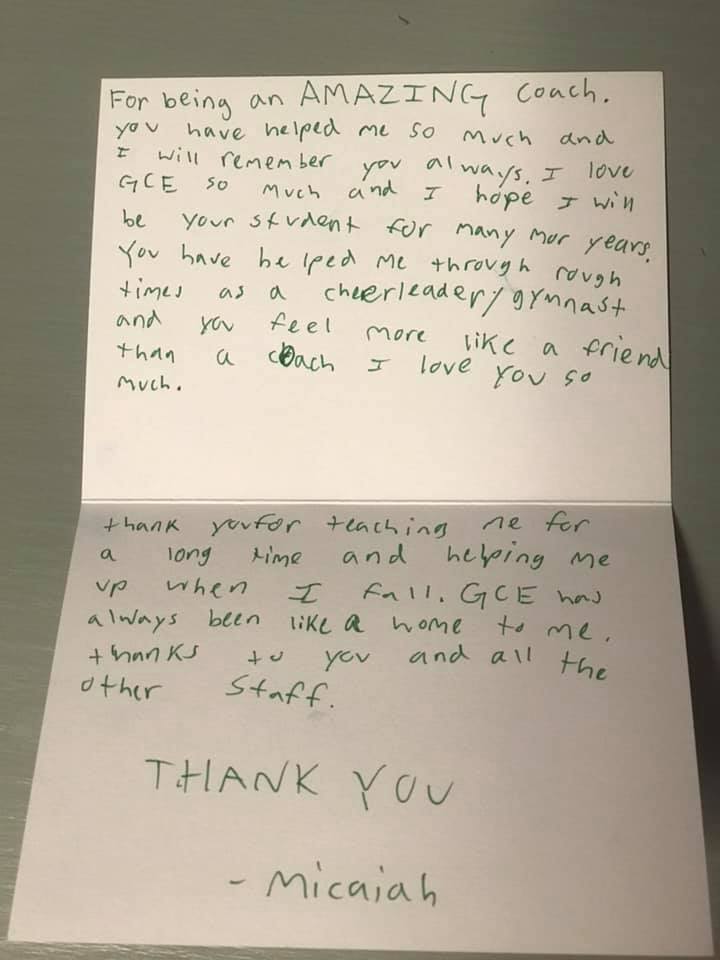 For being an AMAZING coach.
you have helped me so much and
I will remember you always. I love
GCE so much and I hope I will
be your student for many mor years.
You have helped me through rough
times as a cheerleader/gymnast
and you feel more like a friend
than a coach I love you so
much.
thank you for teaching me for
a long time and helping me
up when I fall. GCE has
always been like a home to me.
thanks to you and all the
other staff.
THANK YOU
- Micaiah